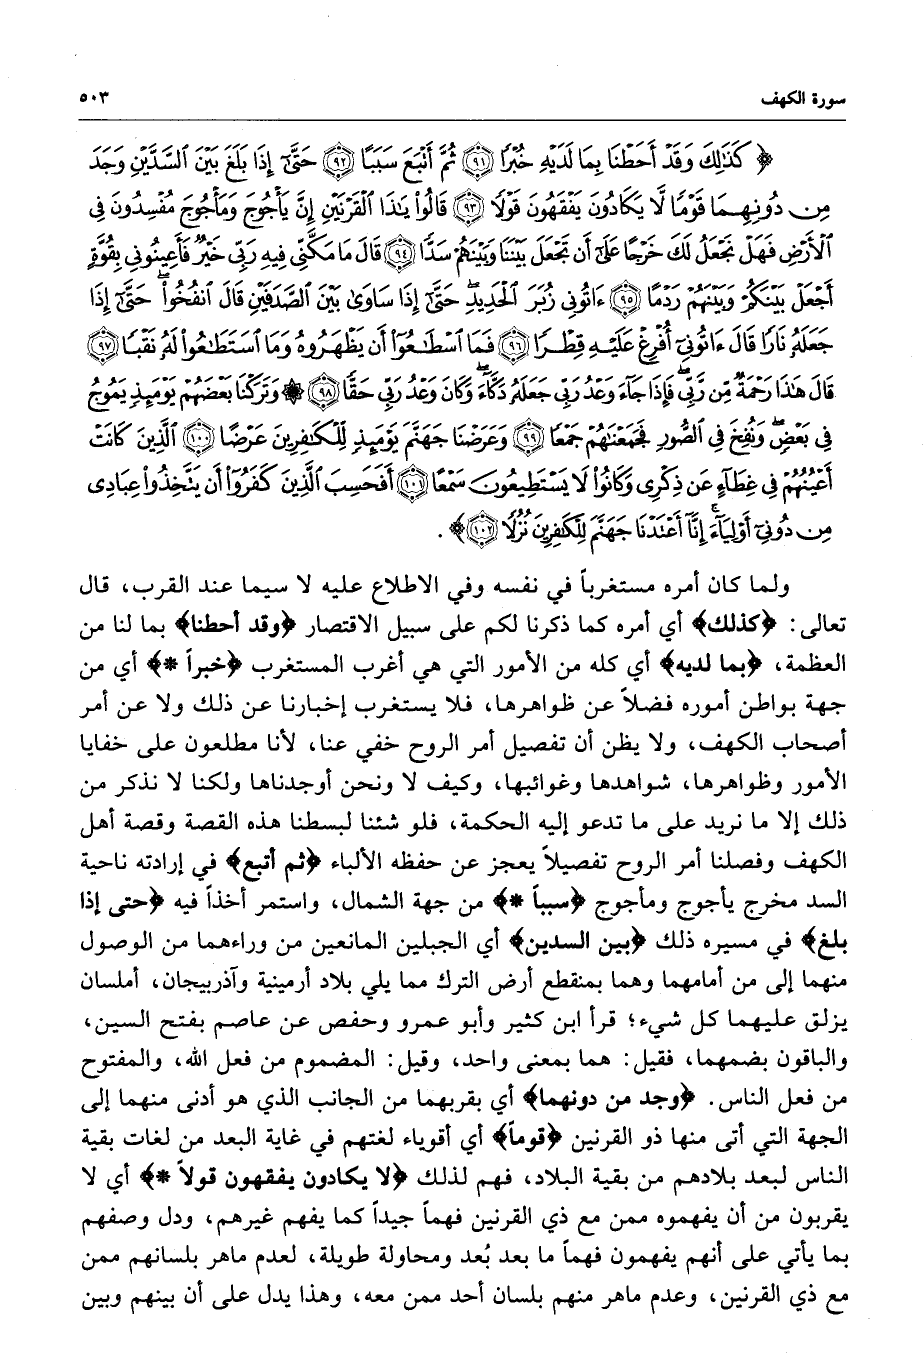 سورة الكهف ٥٠٣
﴿ كَذَٰلِكَ وَقَدْ أَحَطْنَا بِمَا لَدَيْهِ خُبْرًا ﴿٩١﴾ ثُمَّ أَتْبَعَ سَبَبًا ﴿٩٢﴾ حَتَّىٰٓ إِذَا بَلَغَ بَيْنَ ٱلسَّدَّيْنِ وَجَدَ
مِن دُونِهِمَا قَوْمًا لَّا يَكَادُونَ يَفْقَهُونَ قَوْلًا ﴿٩٣﴾ قَالُوا۟ يَٰذَا ٱلْقَرْنَيْنِ إِنَّ يَأْجُوجَ وَمَأْجُوجَ مُفْسِدُونَ فِى
ٱلْأَرْضِ فَهَلْ نَجْعَلُ لَكَ خَرْجًا عَلَىٰٓ أَن تَجْعَلَ بَيْنَنَا وَبَيْنَهُمْ سَدًّا ﴿٩٤﴾ قَالَ مَا مَكَّنِّى فِيهِ رَبِّى خَيْرٌ فَأَعِينُونِى بِقُوَّةٍ
أَجْعَلْ بَيْنَكُمْ وَبَيْنَهُمْ رَدْمًا ﴿٩٥﴾ ءَاتُونِى زُبَرَ ٱلْحَدِيدِ ۖ حَتَّىٰٓ إِذَا سَاوَىٰ بَيْنَ ٱلصَّدَفَيْنِ قَالَ ٱنفُخُوا۟ ۖ حَتَّىٰٓ إِذَا
جَعَلَهُۥ نَارًا قَالَ ءَاتُونِىٓ أُفْرِغْ عَلَيْهِ قِطْرًا ﴿٩٦﴾ فَمَا ٱسْطَٰعُوٓا۟ أَن يَظْهَرُوهُ وَمَا ٱسْتَطَٰعُوا۟ لَهُۥ نَقْبًا ﴿٩٧﴾
قَالَ هَٰذَا رَحْمَةٌ مِّن رَّبِّى ۖ فَإِذَا جَآءَ وَعْدُ رَبِّى جَعَلَهُۥ دَكَّآءَ ۖ وَكَانَ وَعْدُ رَبِّى حَقًّا ﴿٩٨﴾ ۞ وَتَرَكْنَا بَعْضَهُمْ يَوْمَئِذٍ يَمُوجُ
فِى بَعْضٍ ۖ وَنُفِخَ فِى ٱلصُّورِ فَجَمَعْنَٰهُمْ جَمْعًا ﴿٩٩﴾ وَعَرَضْنَا جَهَنَّمَ يَوْمَئِذٍ لِّلْكَٰفِرِينَ عَرْضًا ﴿١٠٠﴾ ٱلَّذِينَ كَانَتْ
أَعْيُنُهُمْ فِى غِطَآءٍ عَن ذِكْرِى وَكَانُوا۟ لَا يَسْتَطِيعُونَ سَمْعًا ﴿١٠١﴾ أَفَحَسِبَ ٱلَّذِينَ كَفَرُوٓا۟ أَن يَتَّخِذُوا۟ عِبَادِى
مِن دُونِىٓ أَوْلِيَآءَ ۚ إِنَّآ أَعْتَدْنَا جَهَنَّمَ لِلْكَٰفِرِينَ نُزُلًا ﴿١٠٢﴾ ﴾ .
ولما كان أمره مستغرباً في نفسه وفي الاطلاع عليه لا سيما عند القرب، قال
تعالى: ﴿كذلك﴾ أي أمره كما ذكرنا لكم على سبيل الاقتصار ﴿وقد أحطنا﴾ بما لنا من
العظمة، ﴿بما لديه﴾ أي كله من الأمور التي هي أغرب المستغرب ﴿خبراً *﴾ أي من
جهة بواطن أموره فضلاً عن ظواهرها، فلا يستغرب إخبارنا عن ذلك ولا عن أمر
أصحاب الكهف، ولا يظن أن تفصيل أمر الروح خفي عنا، لأنا مطلعون على خفايا
الأمور وظواهرها، شواهدها وغوائبها، وكيف لا ونحن أوجدناها ولكنا لا نذكر من
ذلك إلا ما نريد على ما تدعو إليه الحكمة، فلو شئنا لبسطنا هذه القصة وقصة أهل
الكهف وفصلنا أمر الروح تفصيلاً يعجز عن حفظه الألباء ﴿ثم أتبع﴾ في إرادته ناحية
السد مخرج يأجوج ومأجوج ﴿سبباً *﴾ من جهة الشمال، واستمر أخذاً فيه ﴿حتى إذا
بلغ﴾ في مسيره ذلك ﴿بين السدين﴾ أي الجبلين المانعين من وراءهما من الوصول
منهما إلى من أمامهما وهما بمنقطع أرض الترك مما يلي بلاد أرمينية وآذربيجان، أملسان
يزلق عليهما كل شيء؛ قرأ ابن كثير وأبو عمرو وحفص عن عاصم بفتح السين،
والباقون بضمهما، فقيل: هما بمعنى واحد، وقيل: المضموم من فعل الله، والمفتوح
من فعل الناس. ﴿وجد من دونهما﴾ أي بقربهما من الجانب الذي هو أدنى منهما إلى
الجهة التي أتى منها ذو القرنين ﴿قوماً﴾ أي أقوياء لغتهم في غاية البعد من لغات بقية
الناس لبعد بلادهم من بقية البلاد، فهم لذلك ﴿لا يكادون يفقهون قولاً *﴾ أي لا
يقربون من أن يفهموه ممن مع ذي القرنين فهماً جيداً كما يفهم غيرهم، ودل وصفهم
بما يأتي على أنهم يفهمون فهماً ما بعد بُعد ومحاولة طويلة، لعدم ماهر بلسانهم ممن
مع ذي القرنين، وعدم ماهر منهم بلسان أحد ممن معه، وهذا يدل على أن بينهم وبين